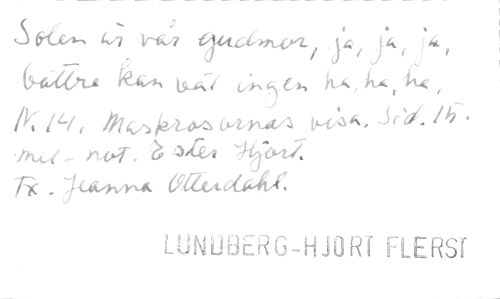 Solen är vår gudmor, ja, ja, ja,
bättre kan väl ingen ha, ha, ha,
N. 14. Maskrosornas visa. Sid. 15.
mel - not. Ester Hjort.
Tx. Jeanna Otterdahl.
LUNDBERG-HJORT FLERST